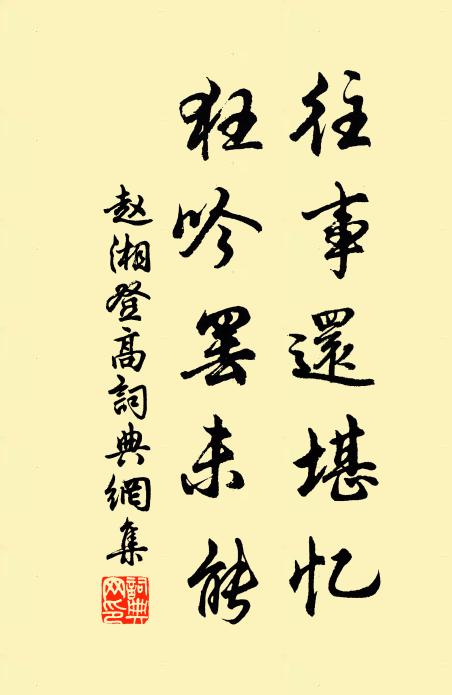 往事還堪忆
狂吟罢未能
赵湘登高詞典網集
詞典网印